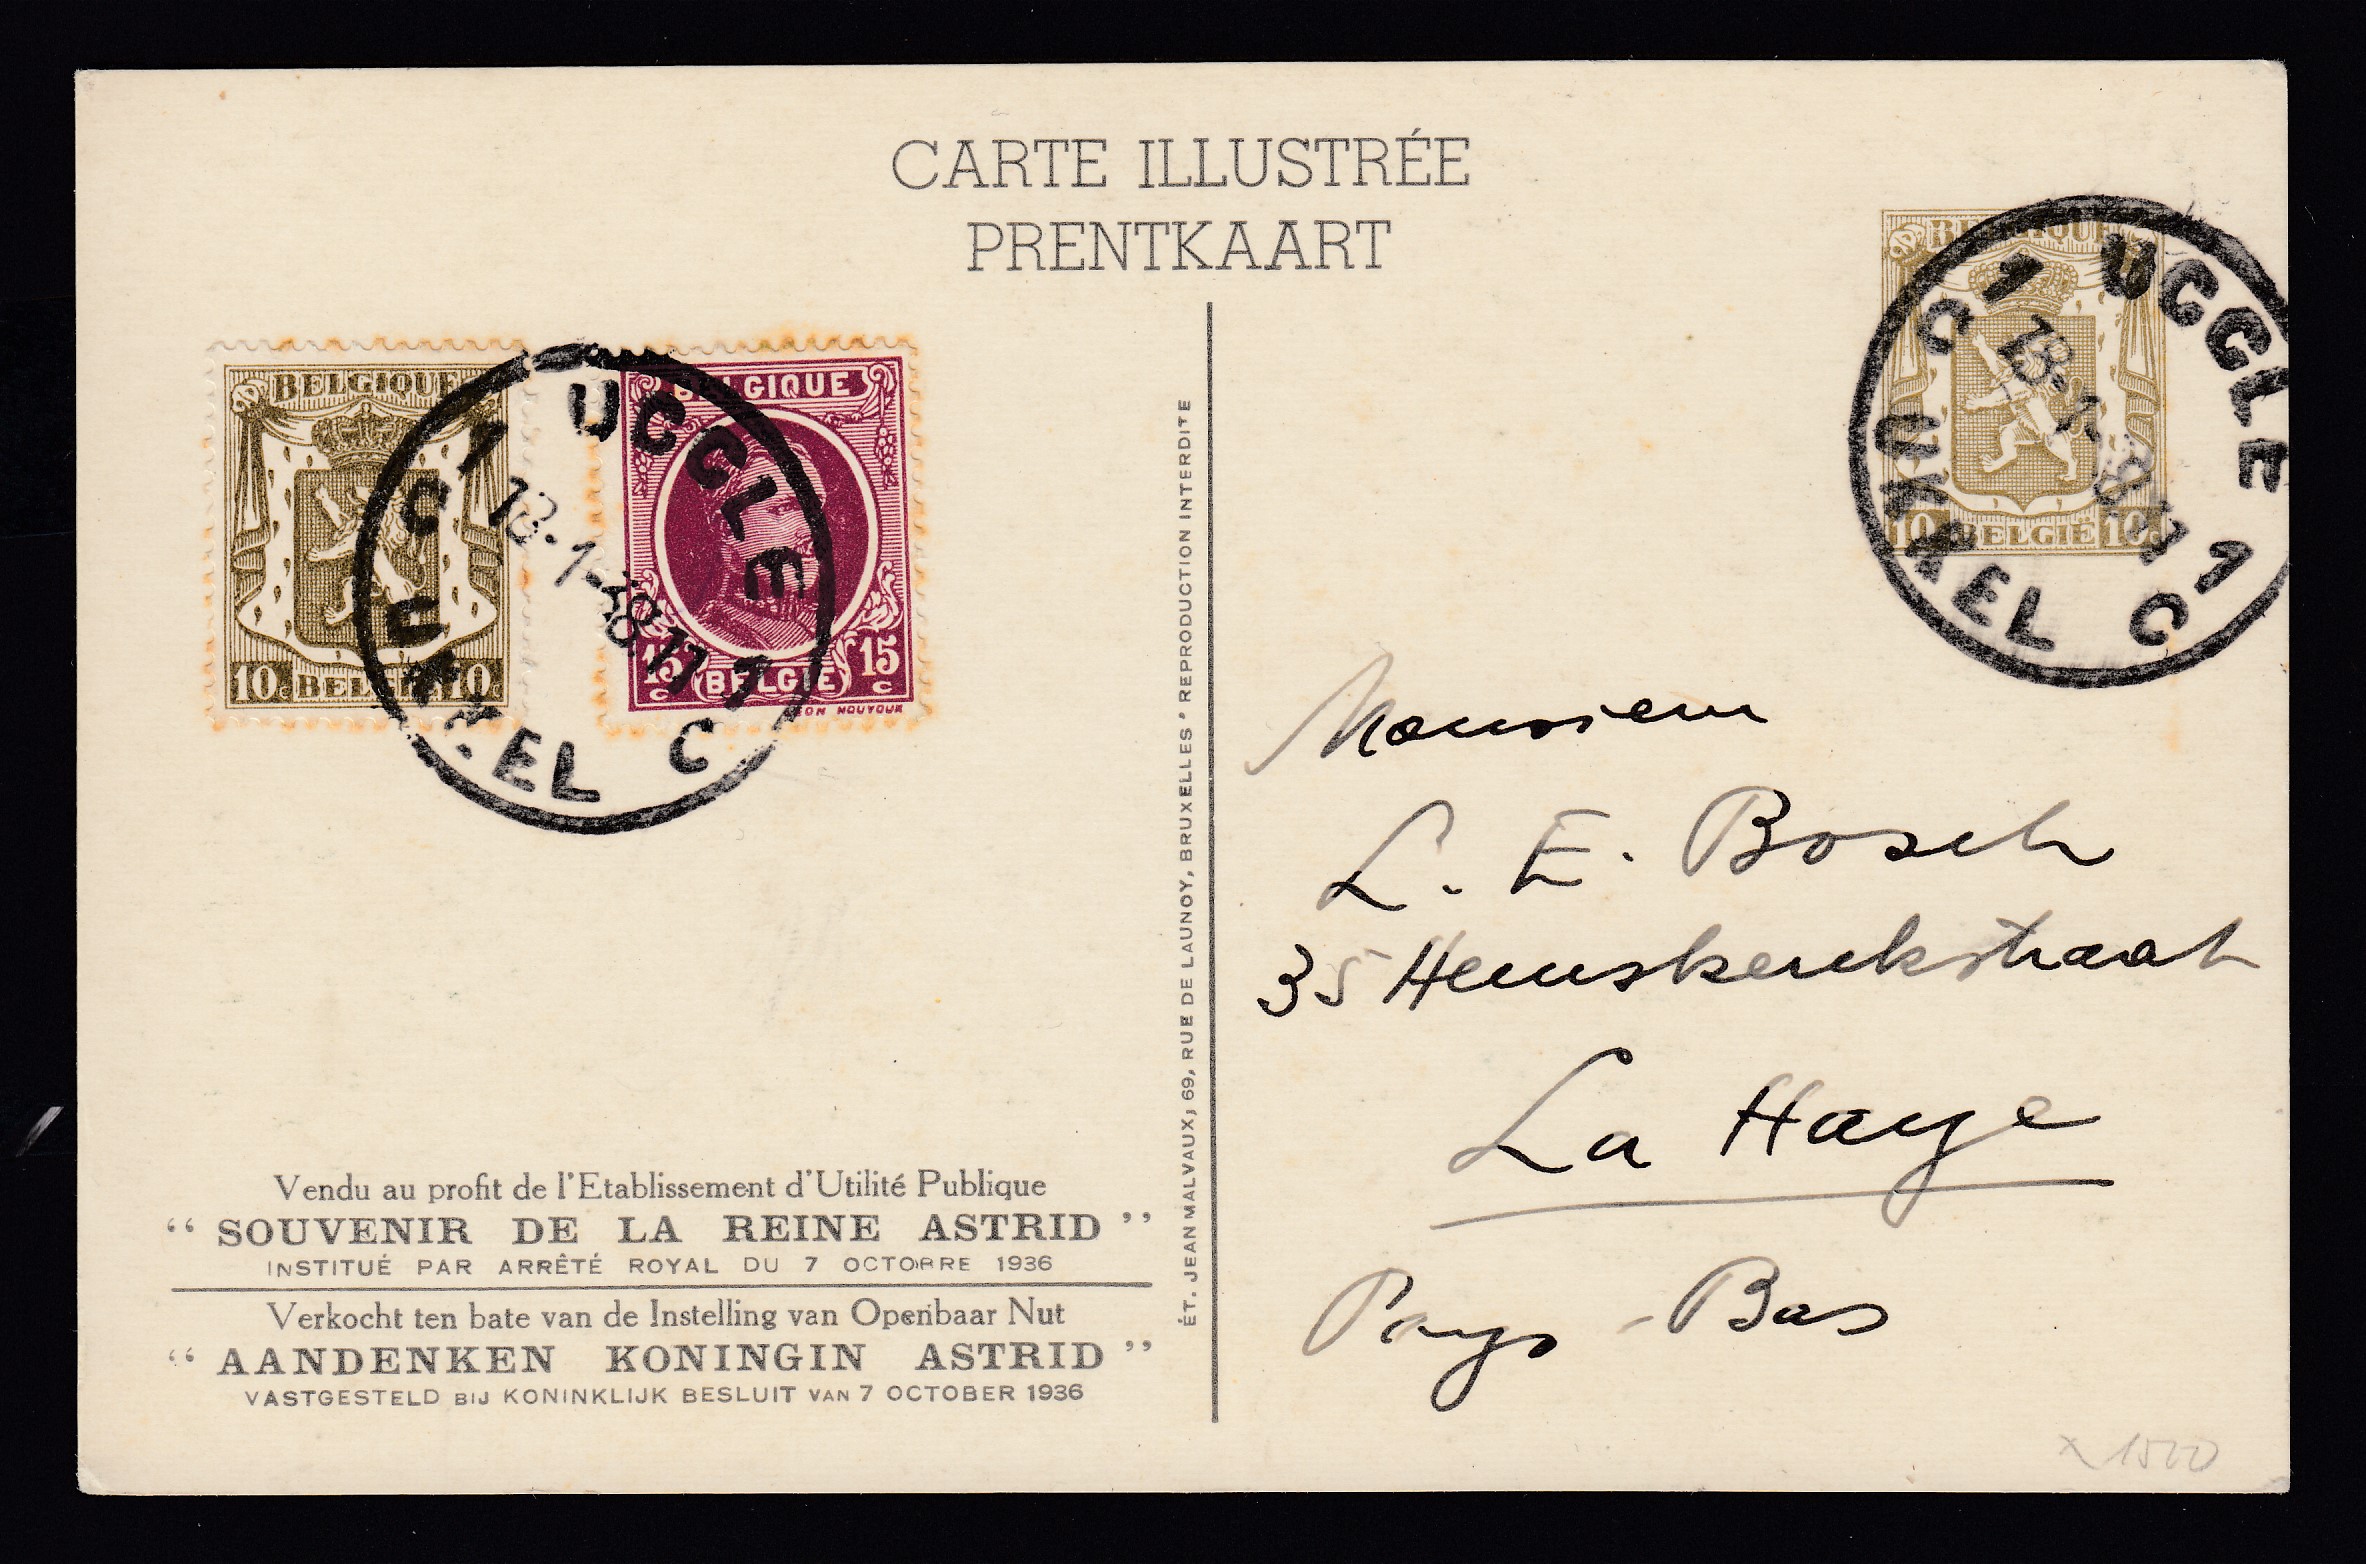 CARTE ILLUSTRÉE
PRENTKAART
BELGIQUE
10c BELGIË 10c
BELGIQUE
15 c BELGIË 15 c
UCCLE 1 C UKKEL C 1
13-1-38.17
BELGIQUE
10c BELGIË 10c
UCCLE 1 C UKKEL C 1
Monsieur
L. E. Bosch
35 Heemskerckstraat
La Haye
Pays-Bas
ÉT. JEAN MALVAUX, 69, RUE DE LAUNOY, BRUXELLES " REPRODUCTION INTERDITE
Vendu au profit de l'Etablissement d'Utilité Publique
“ SOUVENIR DE LA REINE ASTRID ”
INSTITUÉ PAR ARRÊTÉ ROYAL DU 7 OCTOBRE 1936
Verkocht ten bate van de Instelling van Openbaar Nut
“ AANDENKEN KONINGIN ASTRID ”
VASTGESTELD BIJ KONINKLIJK BESLUIT VAN 7 OCTOBER 1936